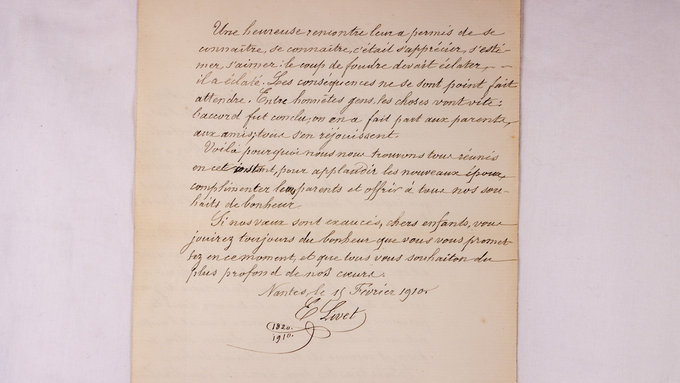 Une heureuse rencontre leur a permis de se
connaître, se connaître, c'était s'apprécier, s'esti-
mer, s'aimer: le coup de foudre devait éclater, -
il a éclaté. Les conséquences ne se sont point fait
attendre. Entre honnêtes gens les choses vont vite:
l'accord fut conclu; on en a fait part aux parents,
aux amis; tous s'en réjouissent.
Voilà pourquoi nous nous trouvons tous réunis
en cet instant, pour applaudir les nouveaux époux,
complimenter leurs parents et offrir à tous nos sou-
haits de bonheur.
Si nos vœux sont exaucés, chers enfants, vous
jouirez toujours du bonheur que vous vous promet-
tez en ce moment, et que tous vous souhaiton du
plus profond de nos cœurs.
Nantes, le 15 Février 1910.
E Livet
1820.
1910.